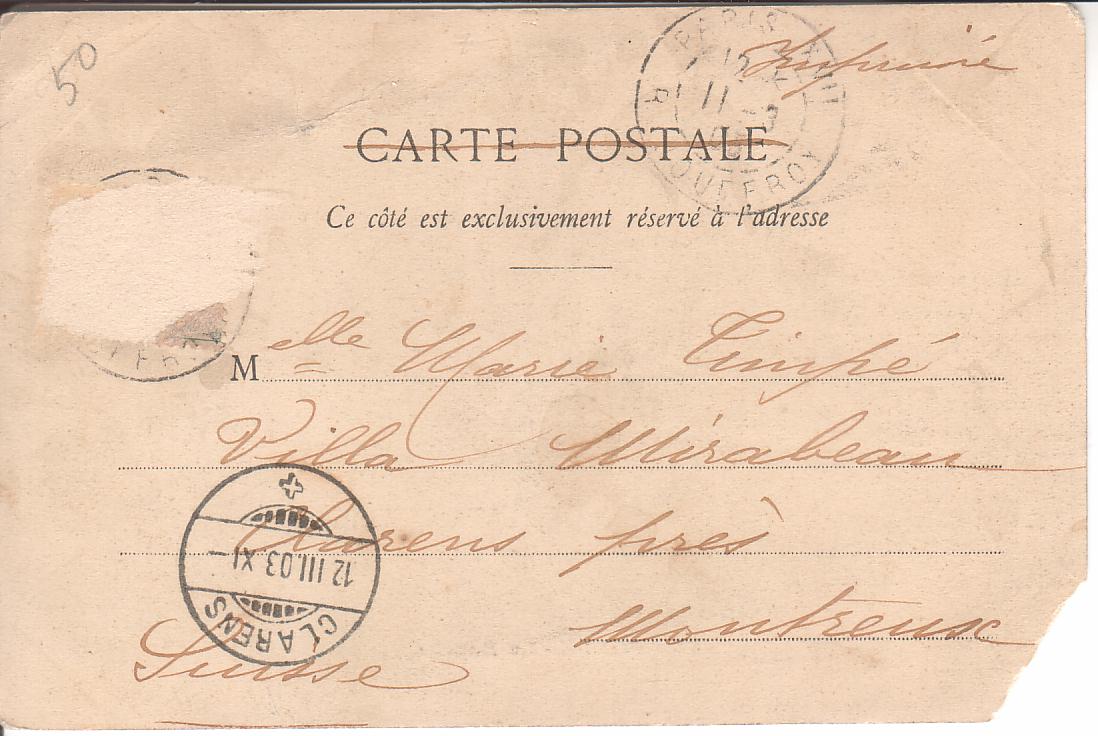 50
Imprimé
PARIS
11
CARTE POSTALE
Ce côté est exclusivement réservé à l'adresse
Melle Marie Timpé
Villa Mirabeau
Clarens près
Montreux
Suisse
12 III.03 XI
CLARENS